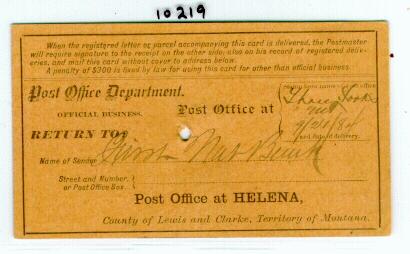 10219
When the registered letter or parcel accompanying this card is delivered, the Postmaster
will require signature to the receipt on the other side, also on his record of registered deliv-
eries, and mail this card without cover to address below.
A penalty of $300 is fixed by law for using this card for other than official business.
Post Office Department.
OFFICIAL BUSINESS.
Post Office at
RETURN TO:
Name of Sender
First Nat Bank
Street and Number,
or Post Office Box.
Post Office at HELENA,
County of Lewis and Clarke, Territory of Montana.